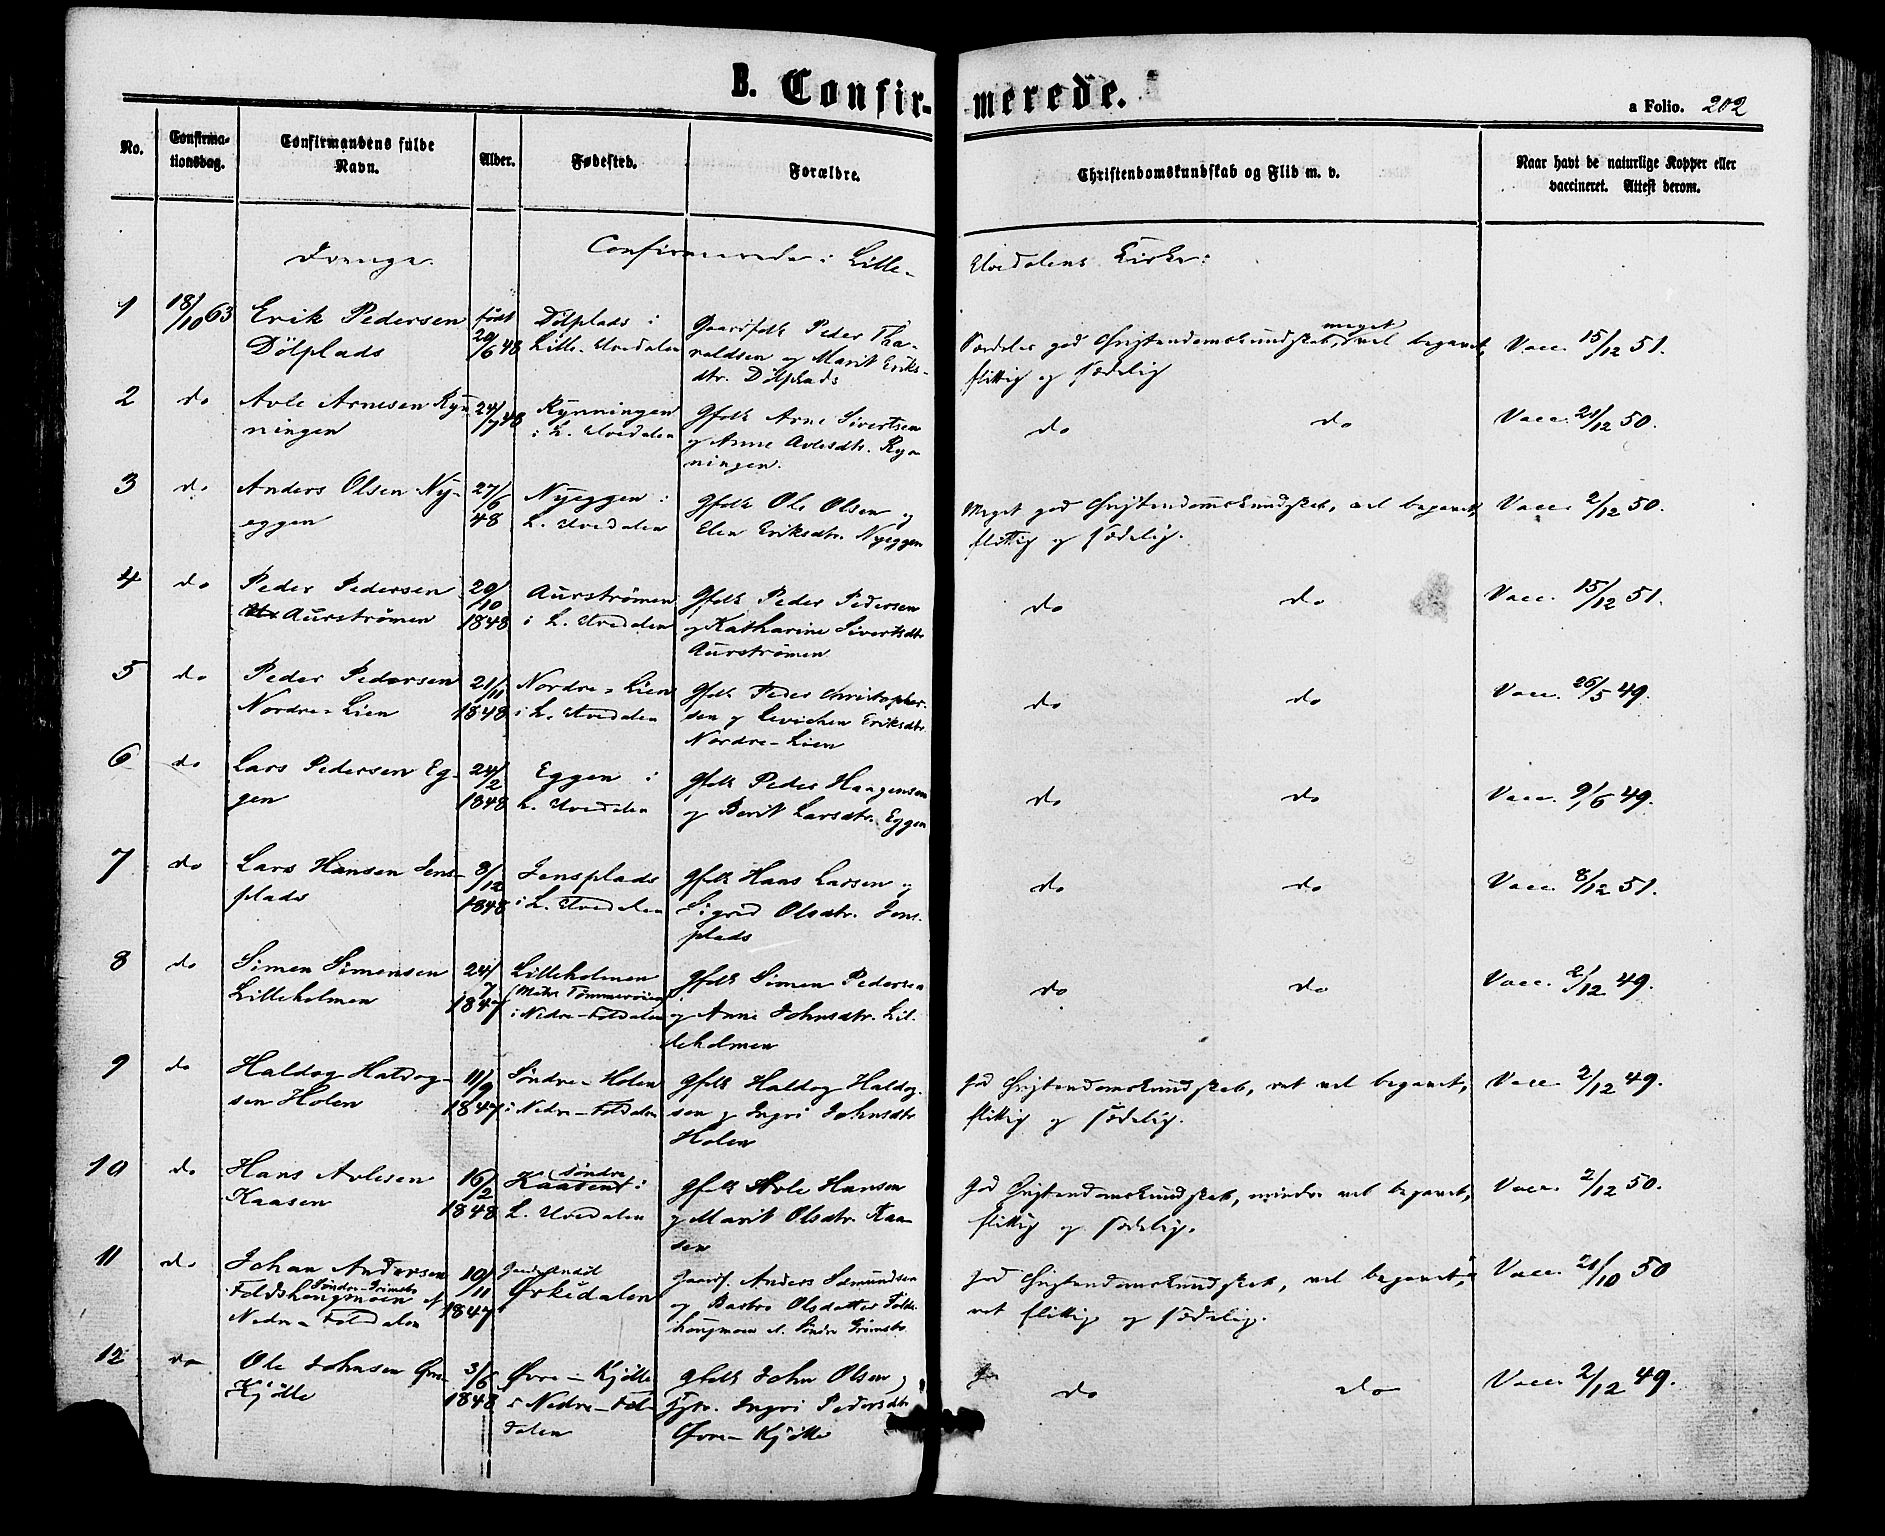 B. Confir- merede.
a Folio. 202
No.
Confirma-
tionsdag.
Confirmandens fulde
Navn.
Alder.
Fødested.
Forældre.
Christendomskundskab og Flid m. v.
Naar havt de naturlige Kopper eller
vaccineret. Attest derom.
Drenge.
Confirmerede i Lille-
Elvedalens Kirke:
1
18/10 63
Erik Pedersen
Dölplads
födt
20/6 48
Dölplads i
Lille-Elvedalen
Gaardfolk Peder Tha-
raldsen og Marit Eriks-
dtr. Dölplads
Særdeles god Christendomskundskab, meget vel begavet,
flittig og sædelig
Vacc. 15/12 51.
2
do
Avle Arnesen Ryn-
ningen
24/7 48
Rynningen
i L. Elvedalen
Gfolk Arne Sivertsen
og Anne Avlesdtr. Ryn-
ningen.
do do
Vacc. 21/12 50.
3
do
Anders Olsen Ny-
eggen
27/6
48
Nyeggen i
L. Elvedalen
Gfolk Ole Olsen og
Elen Eriksdtr. Nyeggen
Meget god Christendomskundskab, vel begavet,
flittig og sædelig.
Vacc. 2/12 50.
4
do
Peder Pedersen
Aurströmen
20/10
1848
Aurströmen
i L. Elvedalen
Gfolk Peder Pedersen
og Katharine Sivertsdtr.
Aurströmen
do do
Vacc. 15/12 51.
5
do
Peder Pedersen
Nordre-Lien
21/11
1848
Nordre-Lien
i L. Elvedalen
Gfolk Peder Christopher-
sen og Eriksdtr.
Nordre-Lien
do do
Vacc. 26/5 49.
6
do
Lars Pedersen Eg-
gen
24/2
1848
Eggen i
L. Elvedalen
Gfolk Peder Haagensen
og Berit Larsdtr. Eggen
do do
Vacc. 9/6 49.
7
do
Lars Hansen Jens-
plads
3/12
1848
Jensplads
i L. Elvedalen
Gfolk Hans Larsen og
Sigrid Olsdtr. Jens-
plads
do do
Vacc. 8/12 51.
8
do
Simen Simensen
Lilleholmen
24/7
1847
Lilleholmen
i Nedre-Foldalen
Gfolk Simen Pedersen
og Anne Johnsdtr. Lil-
leholmen
do do
Vacc. 2/12 49.
9
do
Haldog Haldog-
sen Holen
11/9
1847
Söndre-Holen
i Nedre-Foldalen
Gfolk Haldog Haldog-
sen og Ingri Johnsdtr.
Holen
God Christendomskundskab, ret vel begavet,
flittig og sædelig.
Vacc. 2/12 49.
10
do
Hans Avlesen
Kaasen
16/2
1848
Kaasen (söndre) i
L. Elvedalen
Gfolk Avle Hansen
og Marit Olsdtr. Kaa-
sen
God Christendomskundskab, mindre vel begavet,
flittig og sædelig.
Vacc. 2/12 50.
11
do
Johan Andersen
Foldshougmoen
Nedre-Foldalen
10/11
1847
Ørkedalen
Gaardf. Anders Edmundsen
og Olsdatter Folds-
hougmoen
God Christendomskundskab, vel begavet,
ret flittig og sædelig.
Vacc. 21/10 50
12
do
Ole Johnsen Øvre-
Kjölle
3/6
1848
Øvre-Kjölle
i Nedre-Fol-
dalen
Gfolk John Olsen og
Ingri Pedersdtr.
Øvre-Kjölle
do do
Vacc. 2/12 49.